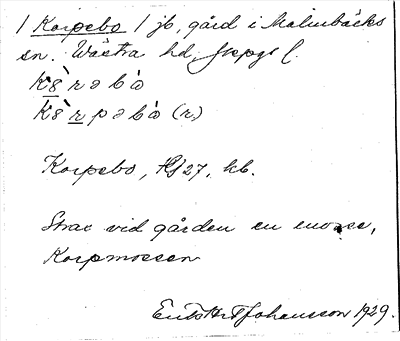 / Korpebo / jb, gård i Malmbäcks
sn. Västra hd, Jkpgs l.
K8̀rəbò
K8̀rpəbò (r.)
Korpebo, 27, kb.
Strax vid gården en mosse,
Korpmossen
Johansson 1929.